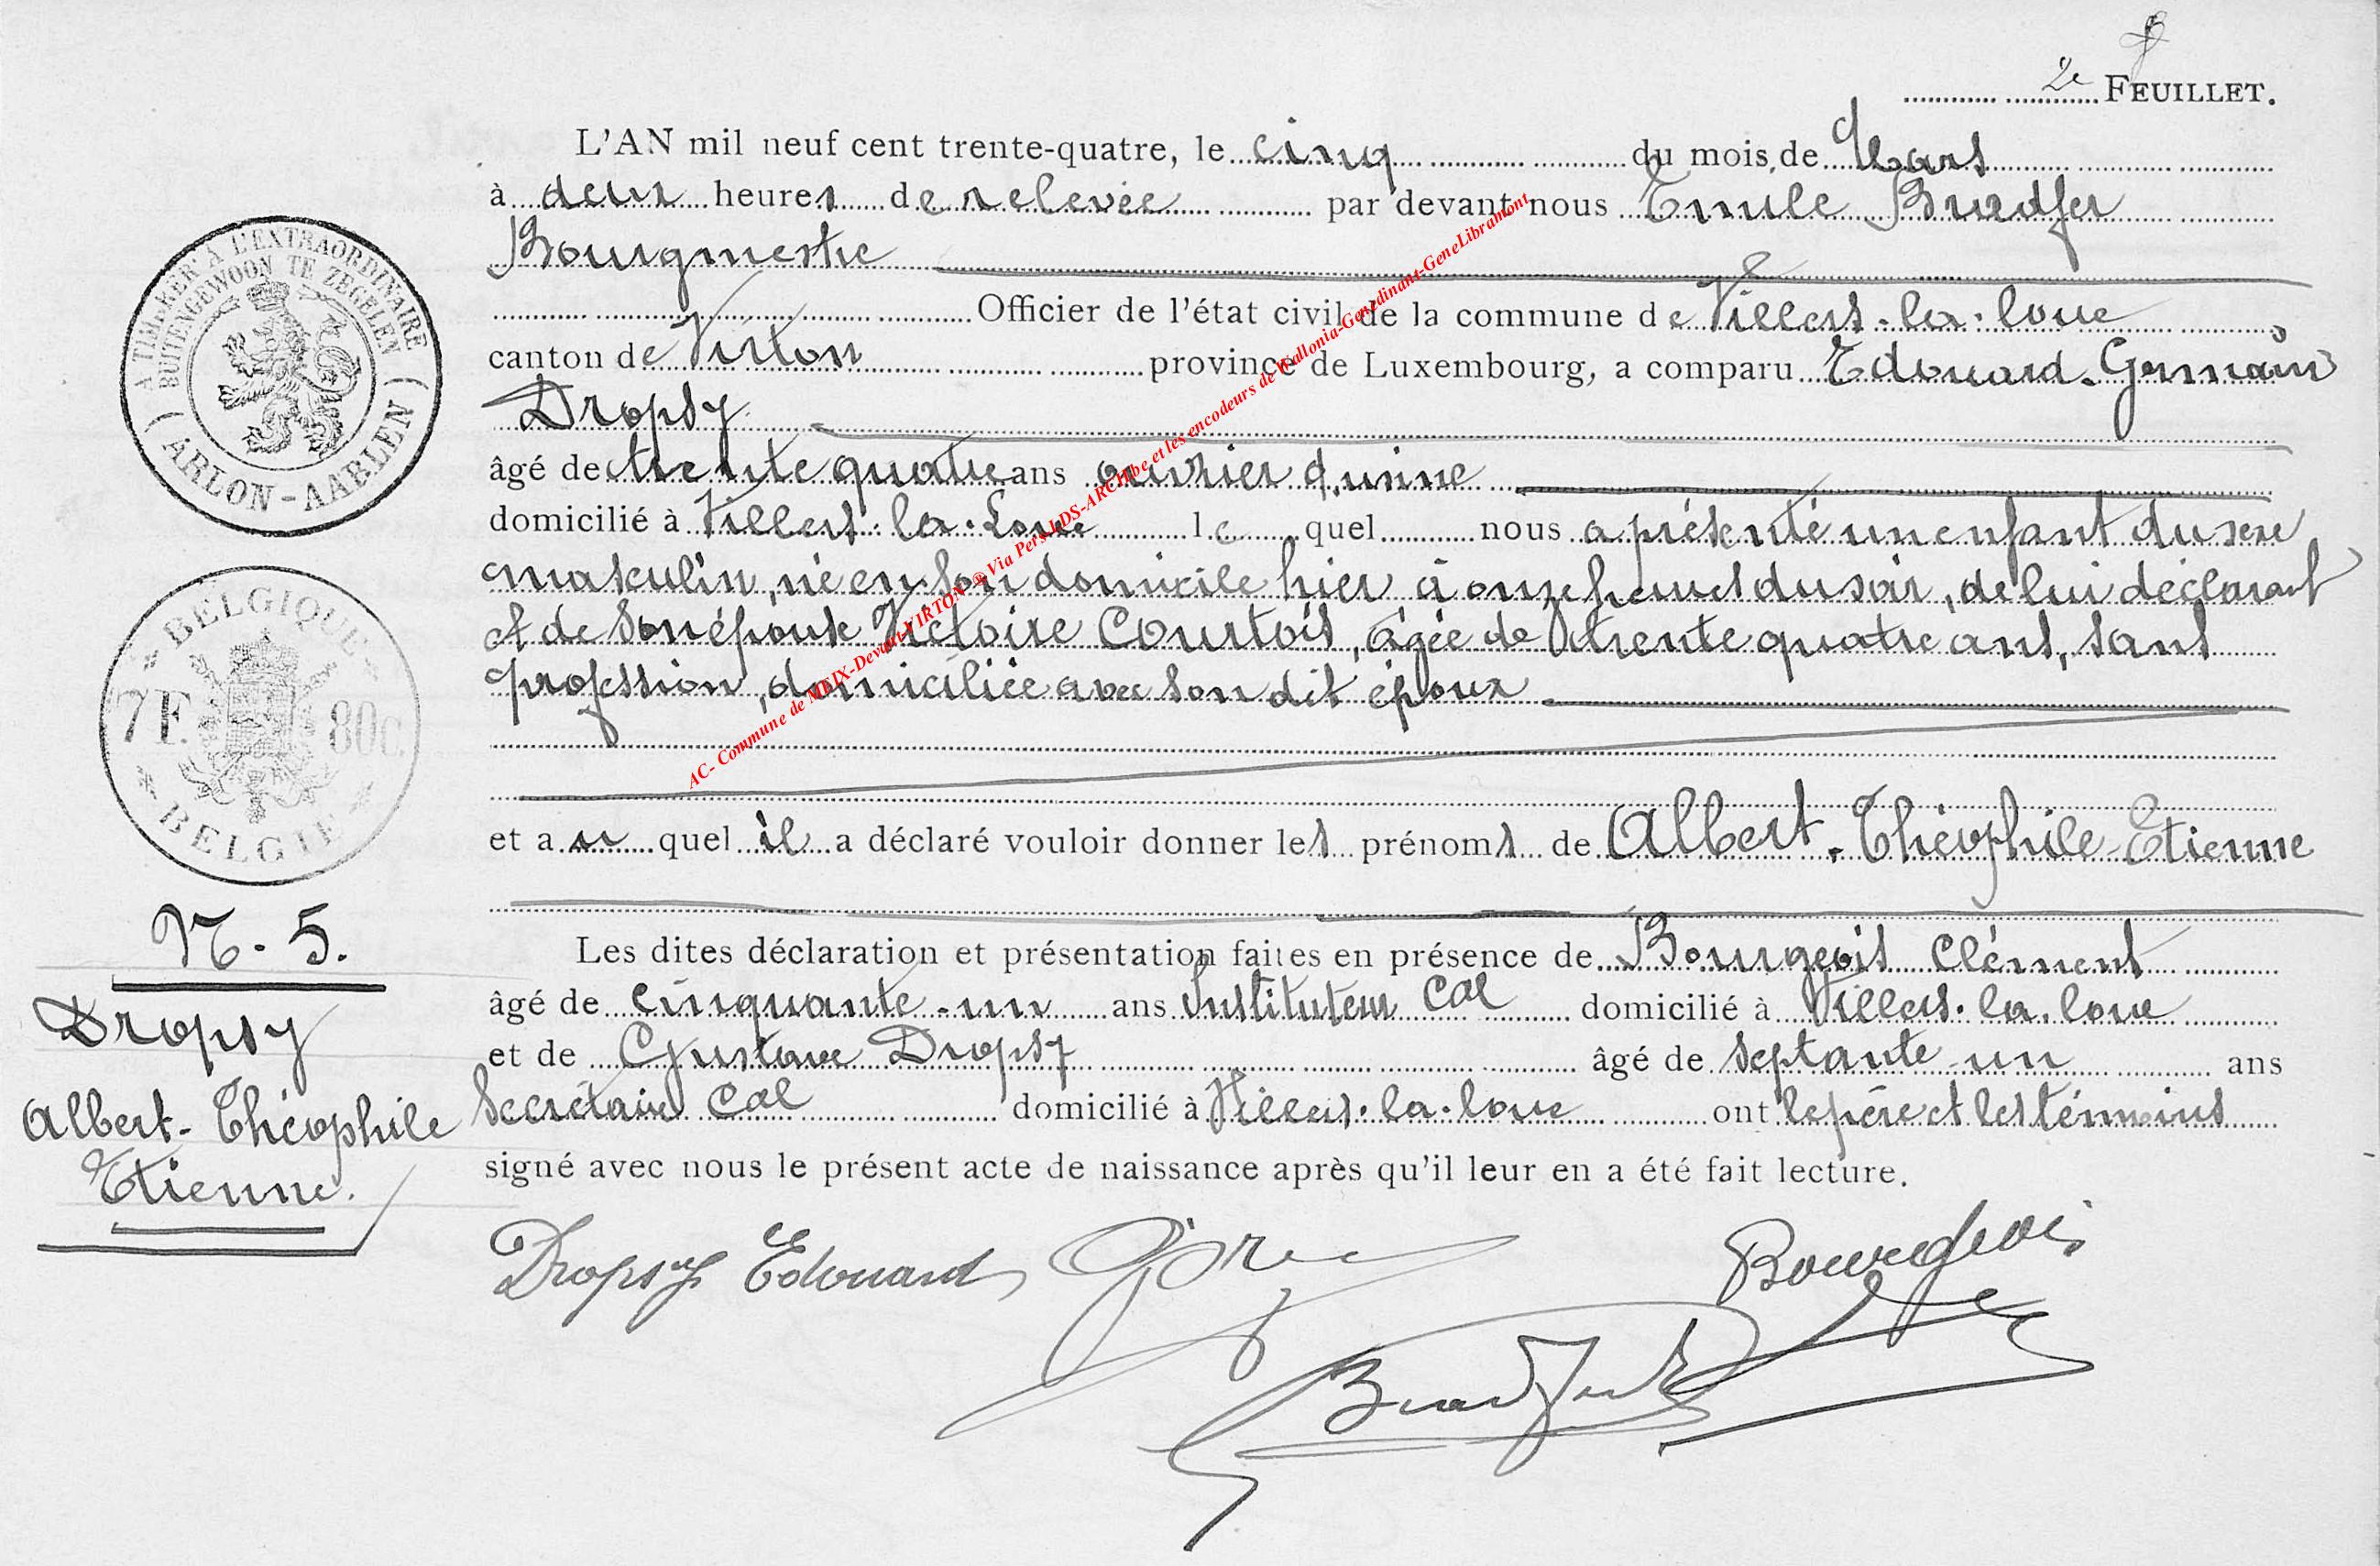 2e FEUILLET.
L'AN mil neuf cent trente-quatre, le cinq du mois de Mars
à deux heures de relevée par devant nous Emile Bradfer
Bourgmestre
Officier de l'état civil de la commune de Villers-la-loue,
canton de Virton province de Luxembourg, a comparu Edouard-Germain
Dropsy
âgé de trente quatre ans ouvrier d'usine
domicilié à Villers-la-Loue lequel nous a présenté un enfant du sexe
masculin, né en son domicile hier, à onze heures du soir, de lui déclarant
et de son épouse Victoire Courtois, âgée de trente quatre ans, sans
profession, domiciliée avec son dit époux
et auquel il a déclaré vouloir donner les prénoms de Albert-Théophile-Etienne
Les dites déclaration et présentation faites en présence de Bourgeois Clément
âgé de cinquante-un ans Instituteur Cal domicilié à Villers-la-loue
et de Gustave Dropsy âgé de septante-un ans
Secrétaire Cal domicilié à Villers-la-loue ont le père et les témoins
signé avec nous le présent acte de naissance après qu'il leur en a été fait lecture.
Dropsy Edouard
Bourgeois
Bradfer
A TIMBRER À L'EXTRAORDINAIRE
BUITENGEWOON TE ZEGELEN
ARLON-AARLEN
BELGIQUE
7F. 80c.
BELGIË
N-5.
Dropsy
Albert-Théophile
Etienne.
AC- Commune de MEIX-Devant-VIRTON @ Via Pers-LDS-ARCH.be et les encodeurs de Wallonia-Genedinant-GeneLibramont